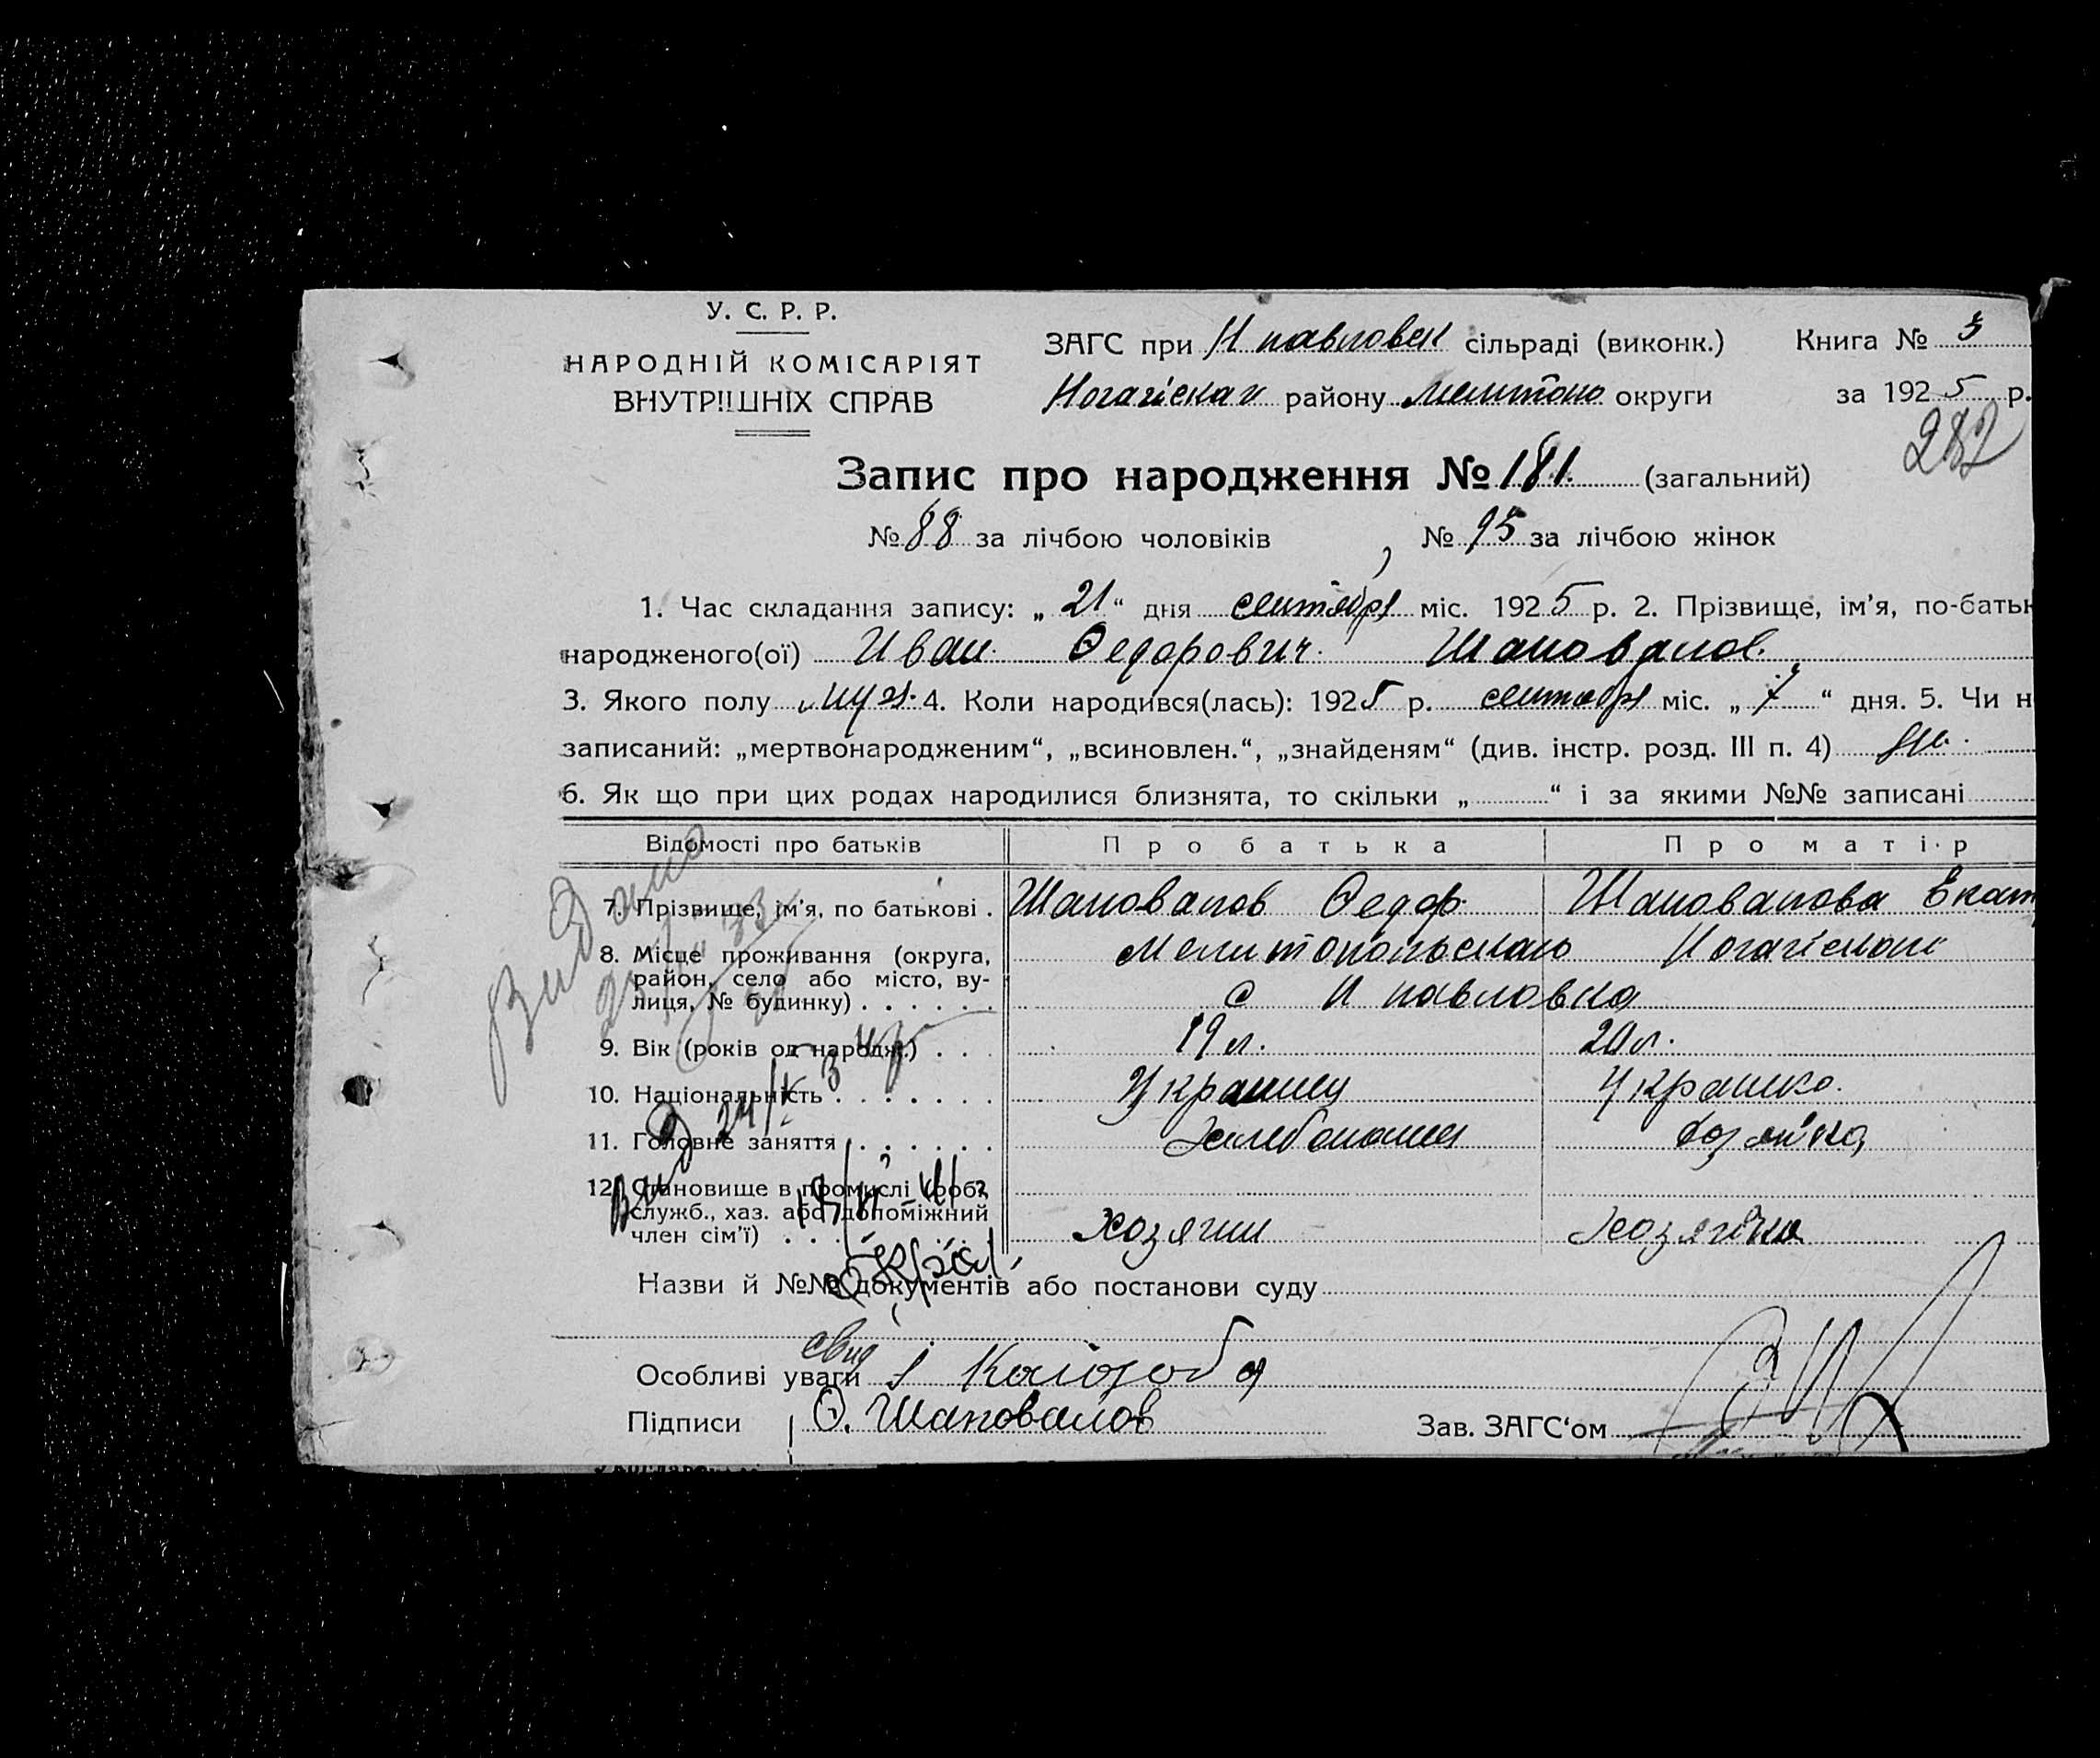 У. С. Р. Р.
НАРОДНІЙ КОМІСАРІЯТ
ВНУТРІШНІХ СПРАВ
ЗАГС при Н павловск сільраді (виконк.) Книга № 3
району округи за 1925 р.
Запис про народження № 181. (загальний)
№ 88 за лічбою чоловіків № 95 за лічбою жінок
1. Час складання запису: „ 21 “ дня сентября міс. 1925 р. 2. Прізвище, ім’я, по-батьк
народженого(ої) Иван Ѳедорович Шаповалов.
3. Якого полу муж. 4. Коли народився(лась): 1925 р. сентября міс. „ 7 “ дня. 5. Чи н
записаний: „мертвонародженим“, „всиновлен.“, „знайденям“ (див. інстр. розд. III п. 4)
6. Як що при цих родах народилися близнята, то скільки „ “ і за якими №№ записані
Відомості про батьків Про батька Про матір
7. Прізвище, ім’я, по батькові . Шаповалов Ѳедор Шаповалова Екат
8. Місце проживання (округа, район, село або місто, вулиця, № будинку) . . . . . .
с Н павловка
9. Вік (років од народж.) . . . 19 л. 20 л.
10. Національність . . . . . . . Украинец Украинка.
11. Головне заняття . . . . . . Хлебопашец
12. Становище в промислі (робі, служб., хаз. або допоміжний член сім’ї) . . . . хозяин хозяйка
Назви й №№ документів або постанови суду
Особливі уваги
свид
Підписи Ѳ. Шаповалов Зав. ЗАГС‘ом